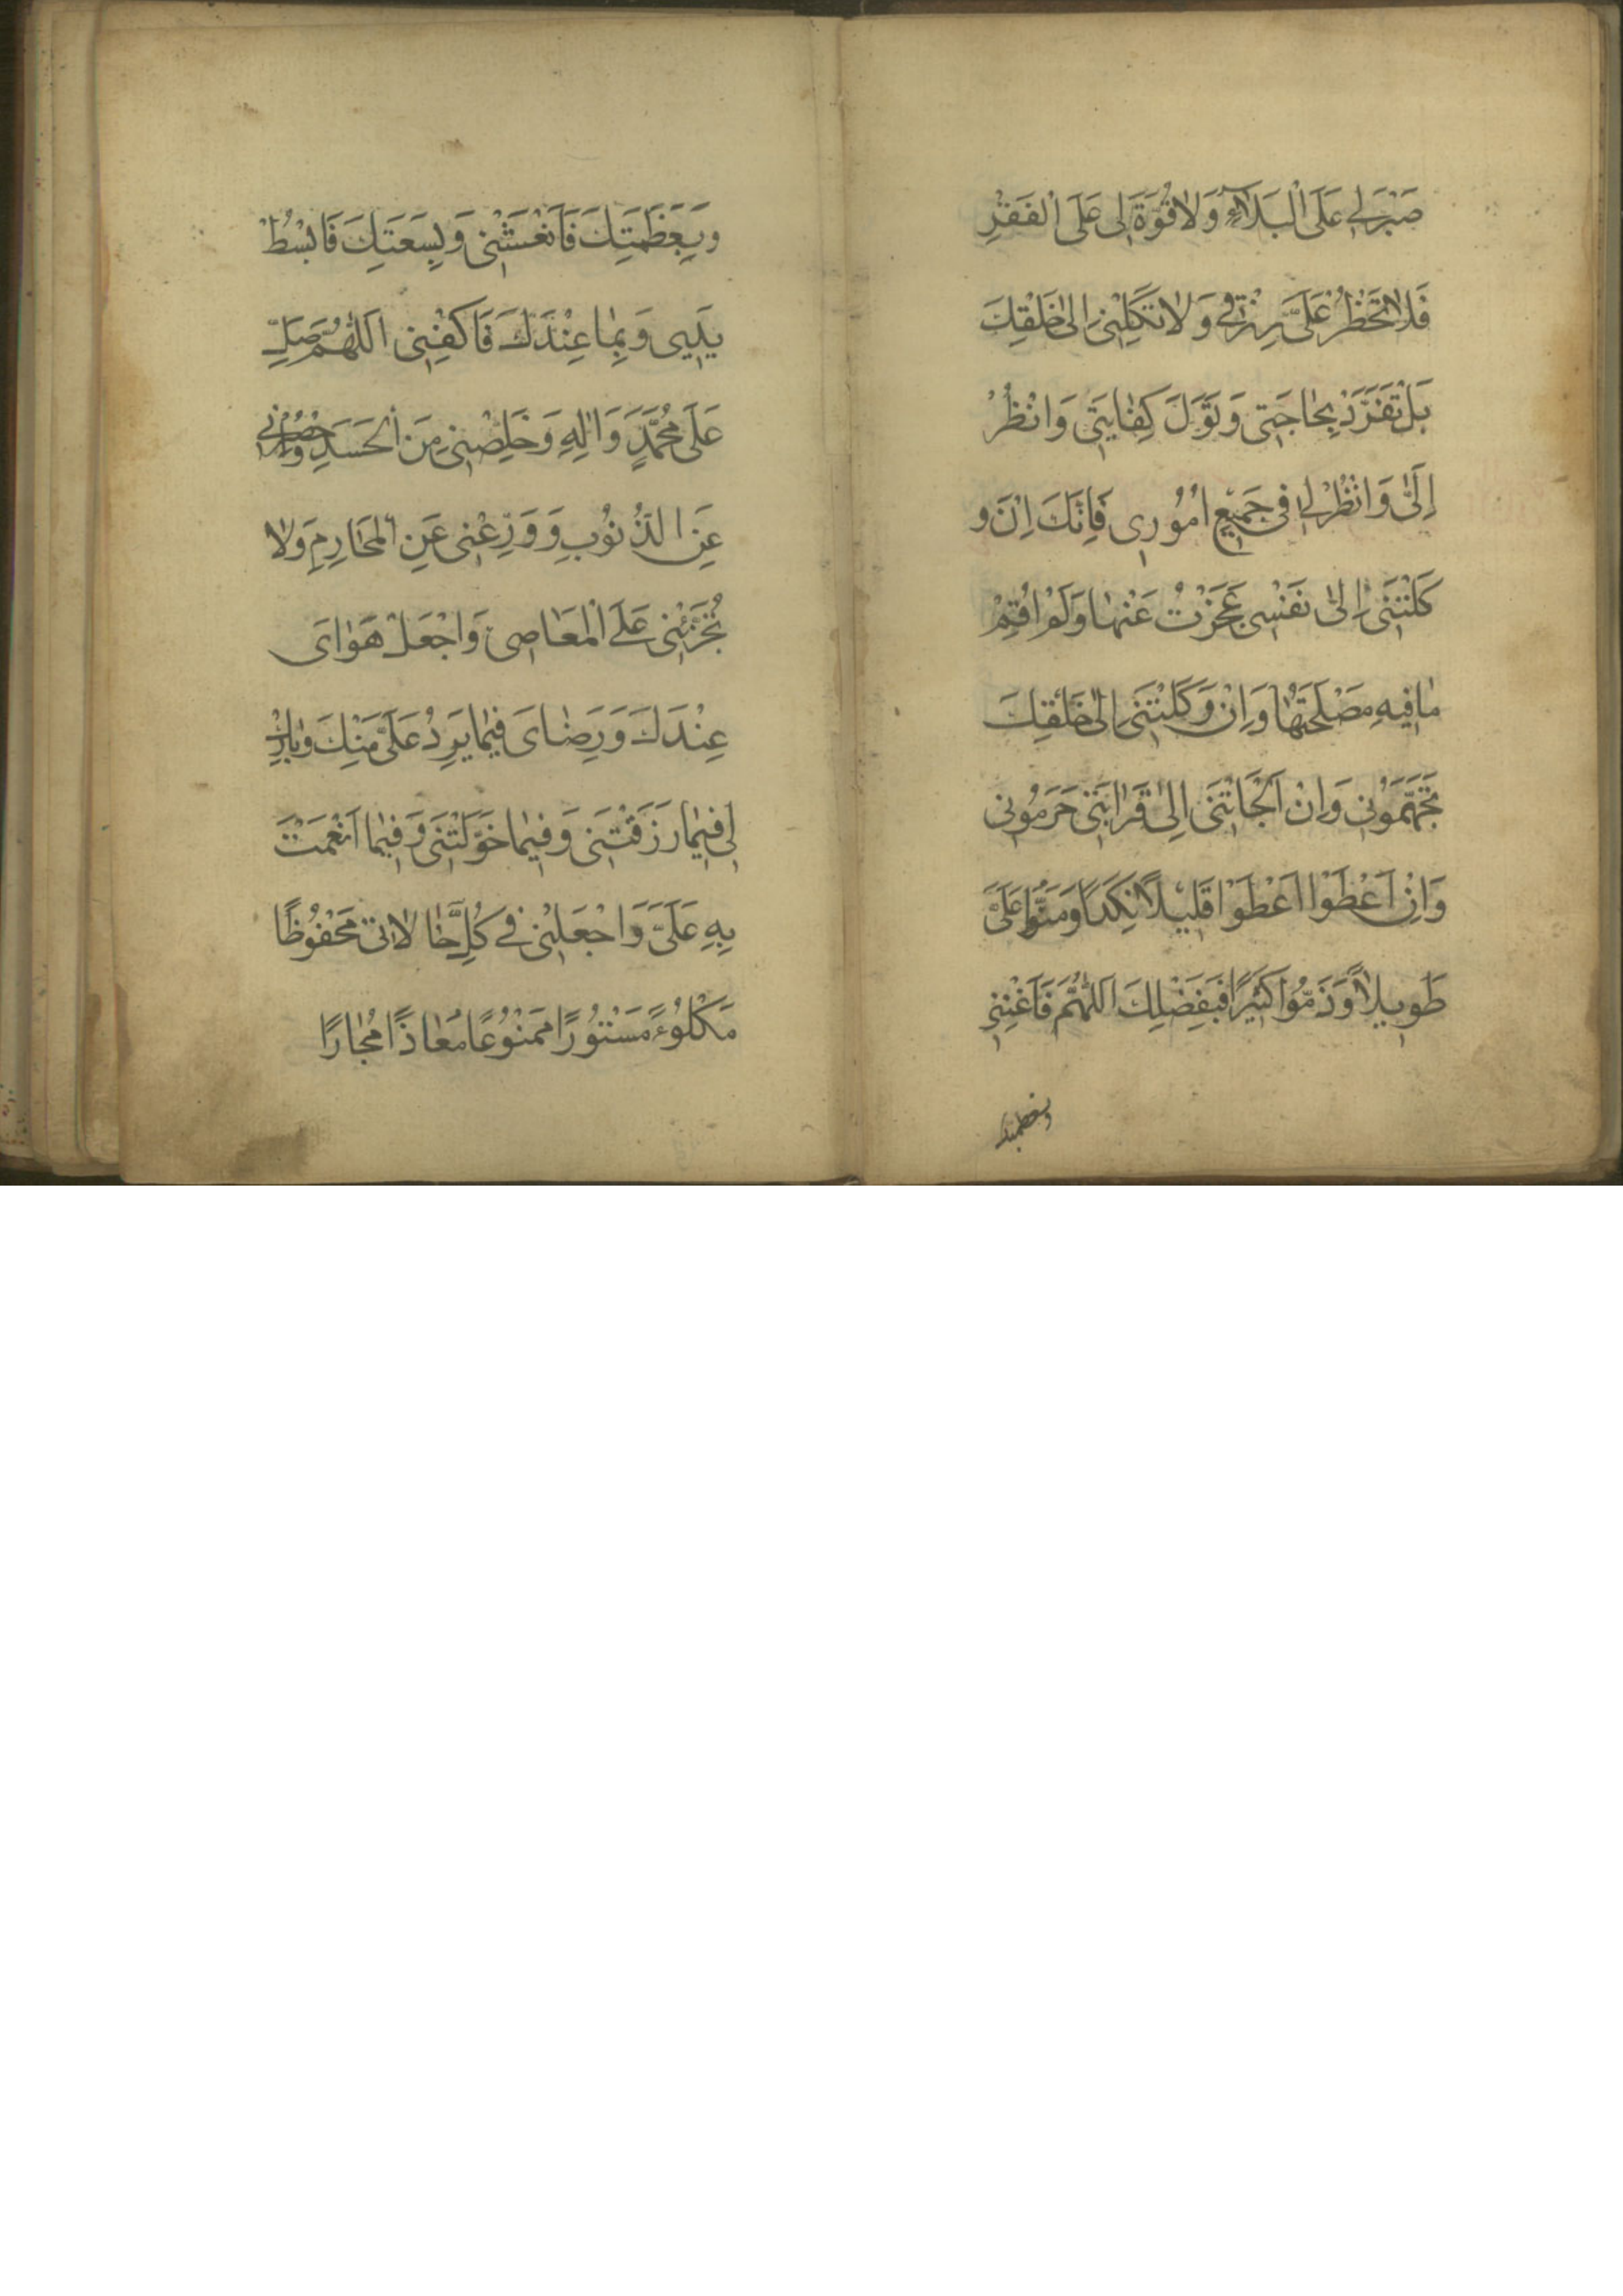 صَبْرَ لِی عَلَی الْبَلَاءِ وَلَا قُوَّةَ لِی عَلَی الْفَقْرِ
فَلَا تَحْظُرْ عَلَیَّ رِزْقِی وَلَا تَکِلْنِی اِلیٰ خَلْقِكَ
بَلْ تَفَرَّدْ بِحَاجَتِی وَتَوَلَّ کِفَایَتِی وَانْظُرْ
اِلَیَّ وَانْظُرْ لِی فِی جَمِیعِ اُمُورِی فَاِنَّكَ اِنْ وَ
کَلْتَنِی اِلیٰ نَفْسِی عَجَزْتُ عَنْهَا وَلَمْ اُقِمْ
مَا فِیهِ مَصْلَحَتُهَا وَاِنْ وَکَلْتَنِی اِلیٰ خَلْقِكَ
تَجَهَّمُونِی وَاِنْ اَلْجَأْتَنِی اِلیٰ قَرَابَتِی حَرَمُونِی
وَاِنْ اَعْطَوْا اَعْطَوْا قَلِیلًا نَکِدًا وَمَنُّوا عَلَیَّ
طَوِیلًا وَذَمُّوا کَثِیرًا فَبِفَضْلِكَ اَللّٰهُمَّ فَاَغْنِنِی
وبعظمتك
وَبِعَظَمَتِكَ فَانْعَشْنِی وَبِسَعَتِكَ فَابْسُطْ
یَدِیی وَبِمَا عِنْدَكَ فَاکْفِنِی اَللّٰهُمَّ صَلِّ
عَلیٰ مُحَمَّدٍ وَاٰلِهِ وَخَلِّصْنِی مِنَ الْحَسَدِ وَاحْصُرْنِی
عَنِ الذُّنُوبِ وَوَرِّعْنِی عَنِ الْمَحَارِمِ وَلَا
تُجَرِّئْنِی عَلَی الْمَعَاصِی وَاجْعَلْ هَوَایَ
عِنْدَكَ وَرِضَایَ فِیمَا یَرِدُ عَلَیَّ مِنْكَ وَبَارِكْ
لِی فِیمَا رَزَقْتَنِی وَفِیمَا خَوَّلْتَنِی وَفِیمَا اَنْعَمْتَ
بِهِ عَلَیَّ وَاجْعَلْنِی فِی کُلِّ حَالَاتِی مَحْفُوظًا
مَکْلُوءً مَسْتُورًا مَمْنُوعًا مُعَاذًا مُجَارًا